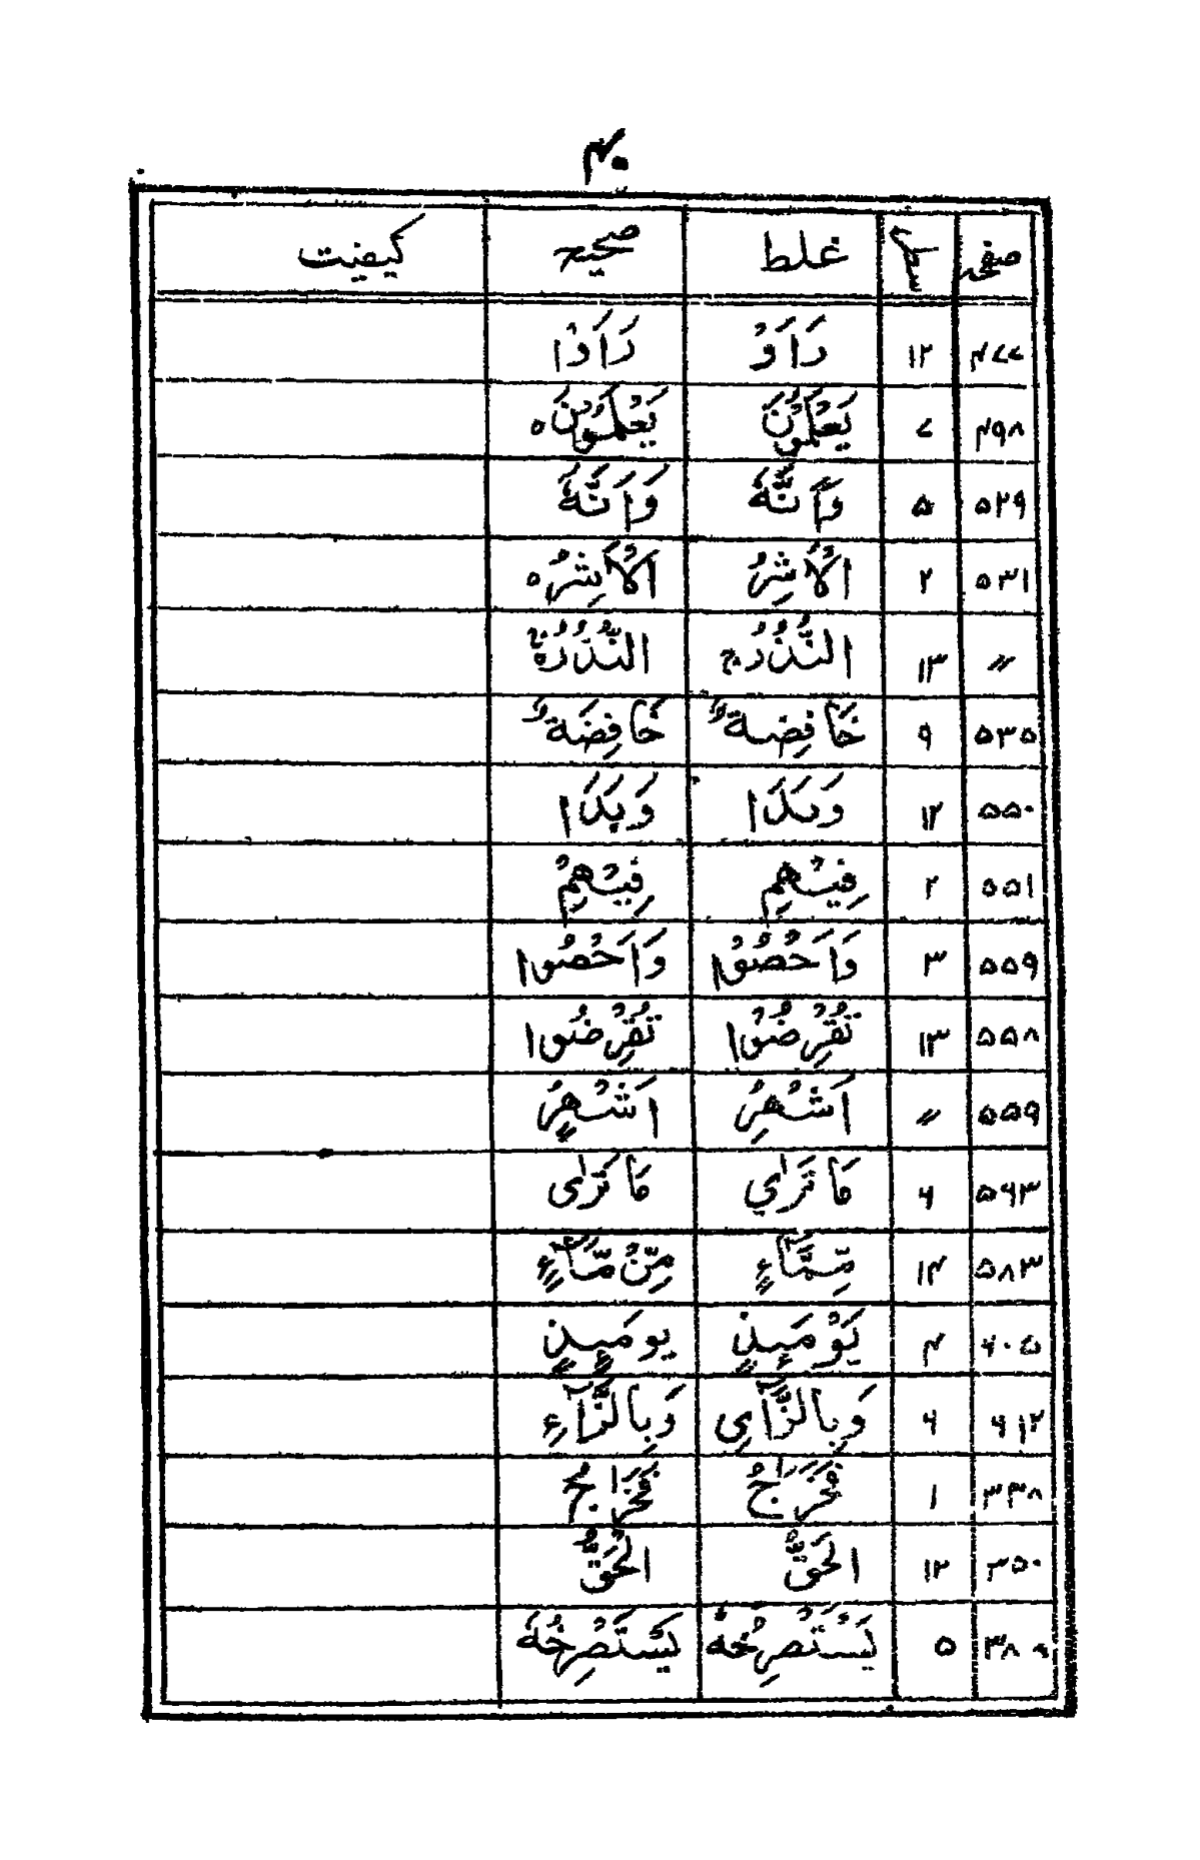 ۴۰
صفحہ سطر غلط صحیح کیفیت
۴۷۷ ۱۲ رَاَوُ رَاَوْا
۴۹۸ ۷ يَعْلَمُوْنَ يَعْلَمُوْنَ ہ
۵۲۹ ۵ وَاَنَّهٗ وَاَنَّهٗ
۵۳۱ ۲ الْاَشِرُ الْاَشِرُ ہ
〃 ۱۳ النُّذُرُ النُّذُرُ
۵۳۵ ۹ خَافِضَة خَافِضَة
۵۵۰ ۱۲ وَبَدَا وَبَدَا
۵۵۱ ۲ فِيْهِمِ فِيْهِمْ
۵۵۹ ۳ وَاَحْصُوْا وَاَحْصُوا
۵۵۸ ۱۳ تُقْرِضُوْا تُقْرِضُوا
۵۵۹ 〃 اَشْهِرُ اَشْهِرٍ
۵۶۳ ۶ مَا تَرٰي مَا تَرٰى
۵۸۳ ۱۴ مِّمَّآءٍ مِّنْ مَّآءٍ
۶۰۵ ۴ يَوْمَىِٕذٍ يومَىِٕذٍ
۶۱۲ ۶ وَبِالزَّاۤىِ وَبِالزَّآءِ
۳۳۸ ۱ فَخَرَاجُ فَخَرَاجُ
۳۵۰ ۱۲ الْحَقُّ الْحَقُّ
۳۸۰ ۵ يَسْتَصْرِخُهٗ يَسْتَصْرِخُهٗ